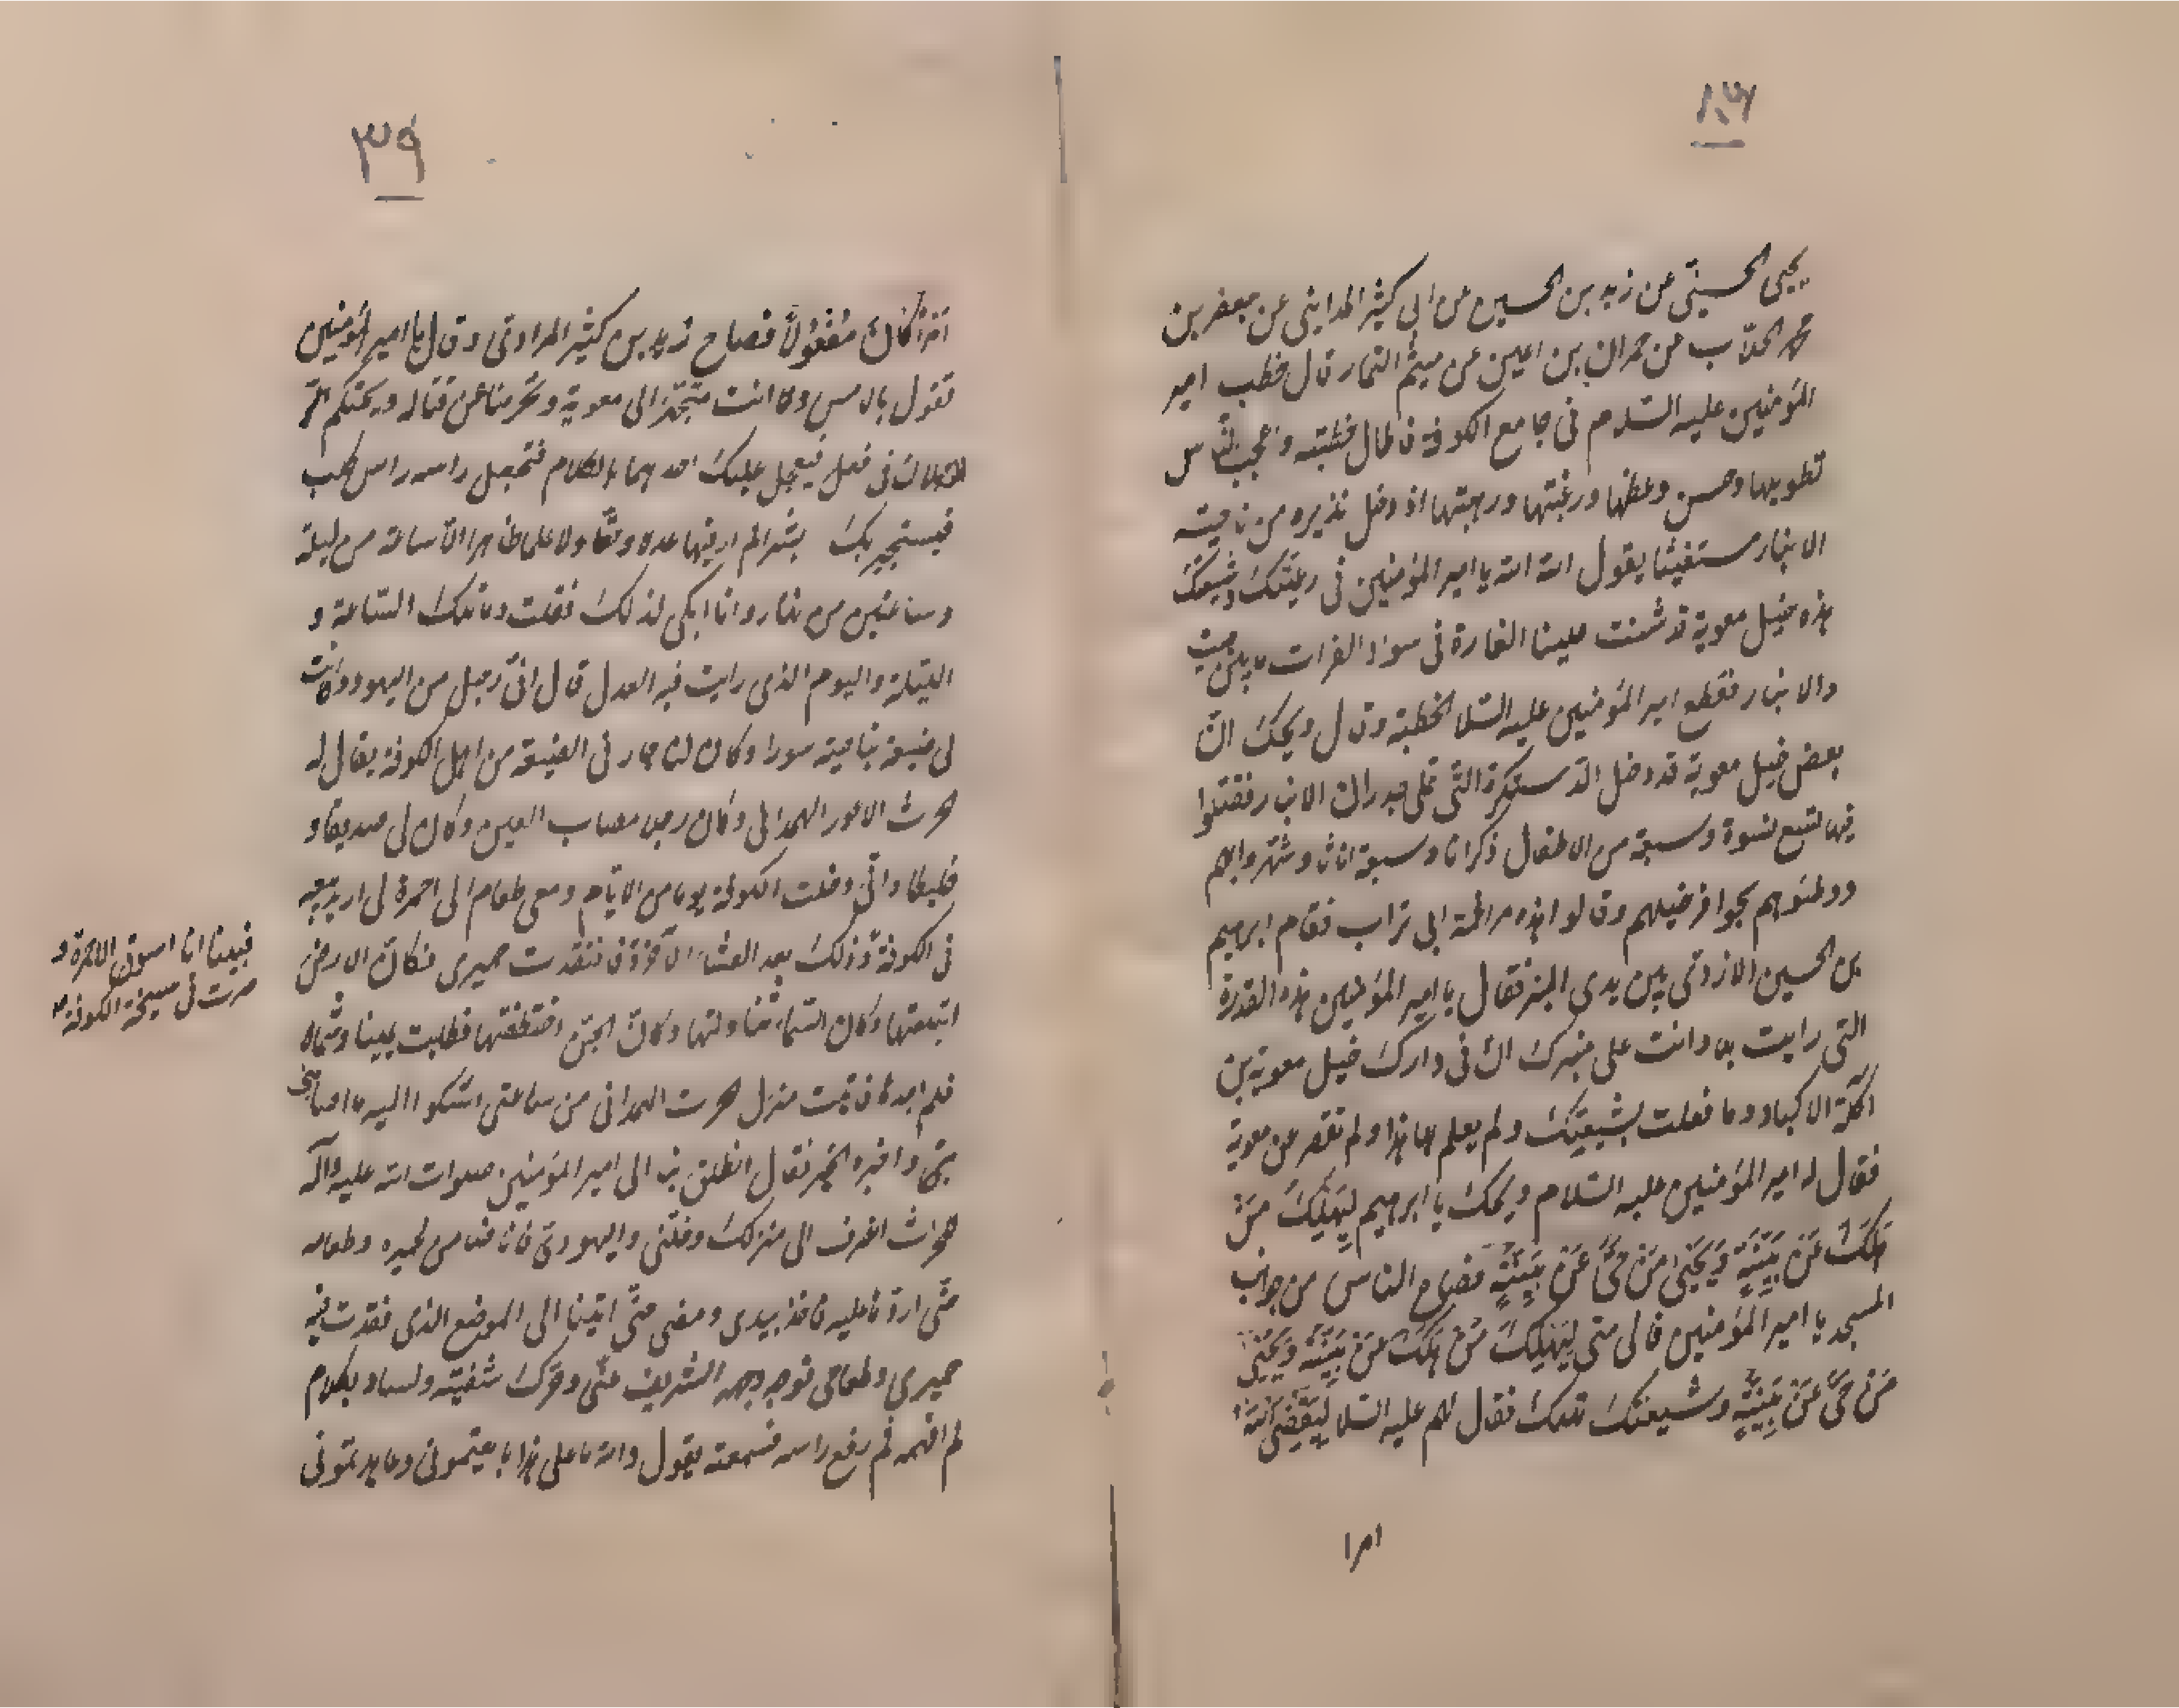 يحيى الحسيني عن زيد بن الحسين عن ابي كثير المدايني عن جعفر بن
محمد الحلاب عن حمران بن اعين عن ميثم التمار قال خطب امير
المؤمنين عليه السلام في جامع الكوفة فاطال خطبته وعجب الناس
تطويلها وحسن وعظها ورغبتها ورهبتها اذ دخل نذيره من ناحيته
الانبار مستغيثا يقول الله الله يا امير المؤمنين في رعيتك وشيعتك
هذه خيل معوية قد شنت علينا الغارة في سواد الفرات ما بين هيت
والانبار فقطع امير المؤمنين عليه السلا الخطبة وقال ويحك ان
بعض خيل معوية قد دخل الدسكرة التي تلي جدران الانبار فقتلوا
فيها تسع نسوة وسبعة من الاطفال ذكرانا وسبعة اناثا وشهروابهم
ووطئوهم بحوافر خيلهم وقالوا هذه مراغمة ابي تراب فقام ابرهيم
بن الحسين الازدي بين يدي المنبر فقال يا امير المؤمنين هذه القدرة
التي رايت بها وانت على منبرك ان في دارك خيل معوية بن
آكلة الاكباد وما فعلت بشيعتك ولم يعلم بها هذا ولم تقصر عن معوية
فقال له امير المؤمنين عليه السلام ويحك يا ابرهيم لِيَهْلِكَ مَنْ
هَلَكَ عَنْ بَيِّنَةٍ وَيَحْيَىٰ مَنْ حَيَّ عَنْ بَيِّنَةٍ فصاح الناس من جوانب
المسجد يا امير المؤمنين فالى متى لِيَهْلِكَ مَنْ هَلَكَ عَنْ بَيِّنَةٍ وَيَحْيَىٰ
مَنْ حَيَّ عَنْ بَيِّنَةٍ وشيعتك تهلك فقال لهم عليه السلا لِيَقْضِيَ اللّٰهُ
امرا
٣٩
اَمْرًا كَانَ مَفْعُولًا فصاح زيد بن كثير المرادي وقال يا امير المؤمنين
تقول بالامس وكانت متجهزا الى معوية وتحرضنا على قتاله ويحتكم اليك
الرجلان في فعل فيعجل عليك احدهما بالكلام فتجعل راسه راس كلب
فيستجير بك بشرا لم ارفيها عدلا وحقا ولا علما ظاهرا الا ساعة من ليلة
وساعتين من نهار وانا ابكي لذلك فقلت وما تلك الساعة و
الليلة واليوم الذي رايت فيه العدل قال اني رجل من اليهود وكانت
لي ضيعة بناحية سورا وكان لنا جار في الضيعة من اهل الكوفة يقال له
الحرث الاعور الهمداني وكان رجلا مصاب العين وكان لي صديقا و
خليطا واني دخلت الكوفة يوما من الايام ومعي طعام الى احمرة لي اريد بيعه
في الكوفة وذلك بعد العشاء الآخرة فافتقدت حميري فكان الارض
ابتلعتها وكان السماء تناولتها وكان الجن اختطفتها فطلبت يمينا وشمالا
فلم اجدها فاتيت منزل الحرث الهمداني من ساعتي اشكوا اليه ما اصابني
بها واخبره الخبر فقال انطلق بنا الى امير المؤمنين صلوات الله عليه وآله
للحرث انصرف الى منزلك وخلني واليهودي فانا ضامن لحميره وطعامه
حتى اردها عليه فاخذ بيدي ومضى حتى اتينا الى الموضع الذي فقدت فيه
حميري وطعامي فوجه وجهه الشريف عني وحرك شفتيه ولسانه بكلام
لم افهمه ثم رفع راسه فسمعته يقول والله ما على هذا بايعتموني وعاهدتموني
فبينا انا اسوق الاحمرة و
صرت في سبخة الكوفة